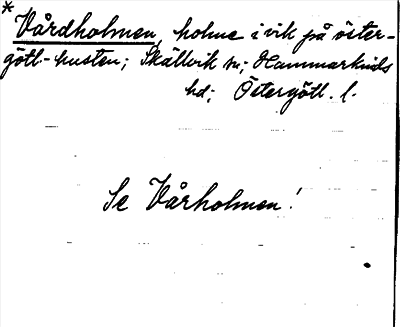 * Vårdholmen, holme i vik på öster-
götl.-kusten; Skällvik sn; Hammarkinds
hd; Östergötl. l.
Se Vårholmen!